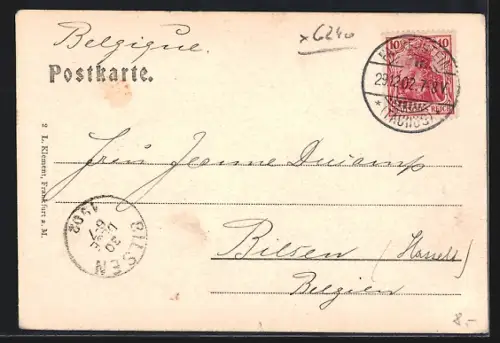 Belgique.
x6240
Postkarte.
10 10
29.12.02.7-8V
* (TAUNUS) *
2 L. Klement, Frankfurt a. M.
Jeanne
BILSEN
30
6-7
1902
Bilsen (Hasselt)
Belgien
8.-